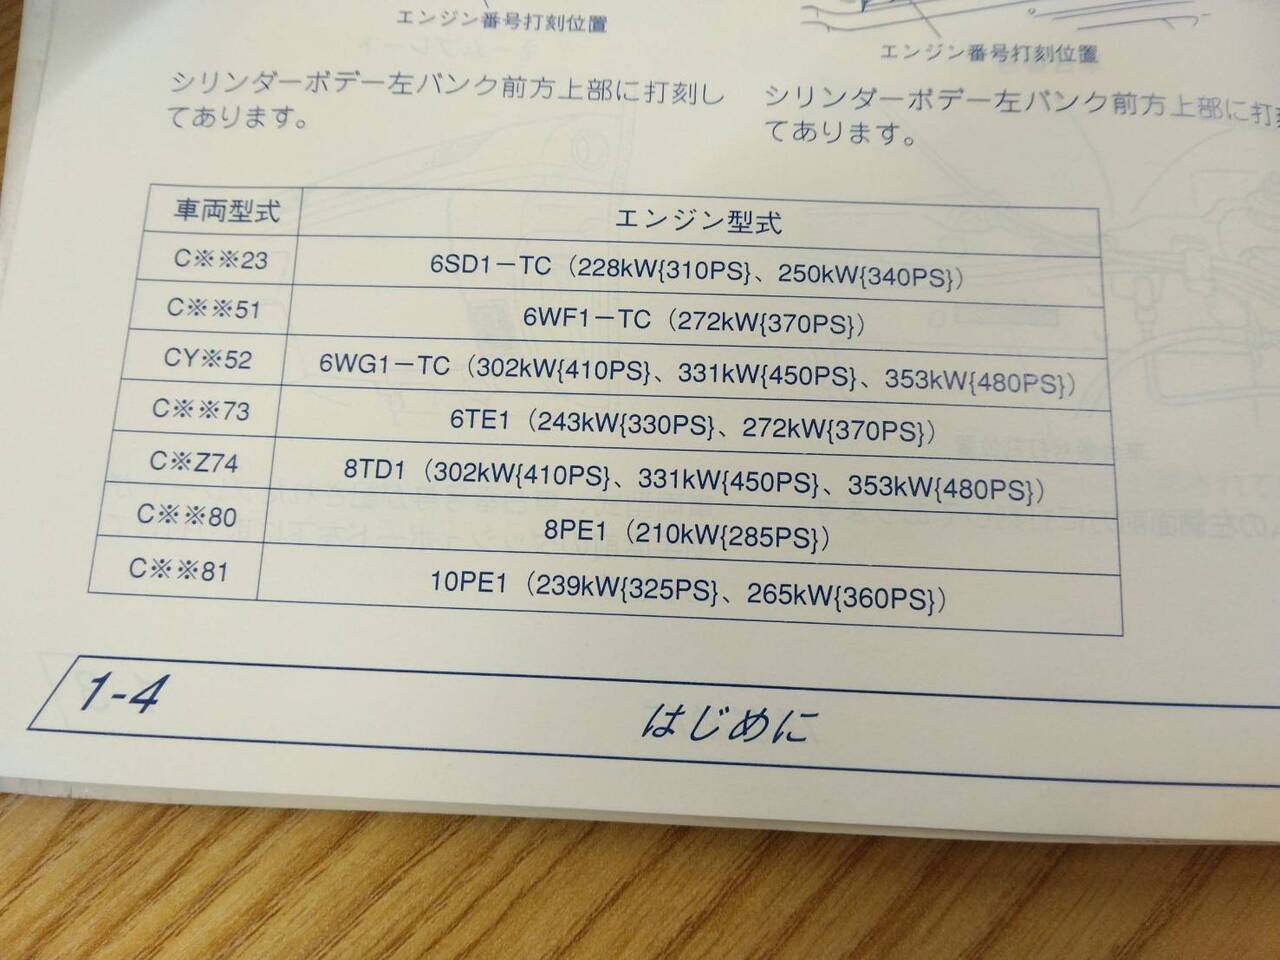 エンジン番号打刻位置
エンジン番号打刻位置
シリンダーボデー左バンク前方上部に打刻し
てあります。
シリンダーボデー左バンク前方上部に打刻
てあります。
車両型式 エンジン型式
C※※23 6SD1－TC（228kW{310PS}、250kW{340PS}）
C※※51 6WF1－TC（272kW{370PS}）
CY※52 6WG1－TC（302kW{410PS}、331kW{450PS}、353kW{480PS}）
C※※73 6TE1（243kW{330PS}、272kW{370PS}）
C※Z74 8TD1（302kW{410PS}、331kW{450PS}、353kW{480PS}）
C※※80 8PE1（210kW{285PS}）
C※※81 10PE1（239kW{325PS}、265kW{360PS}）
1-4 はじめに